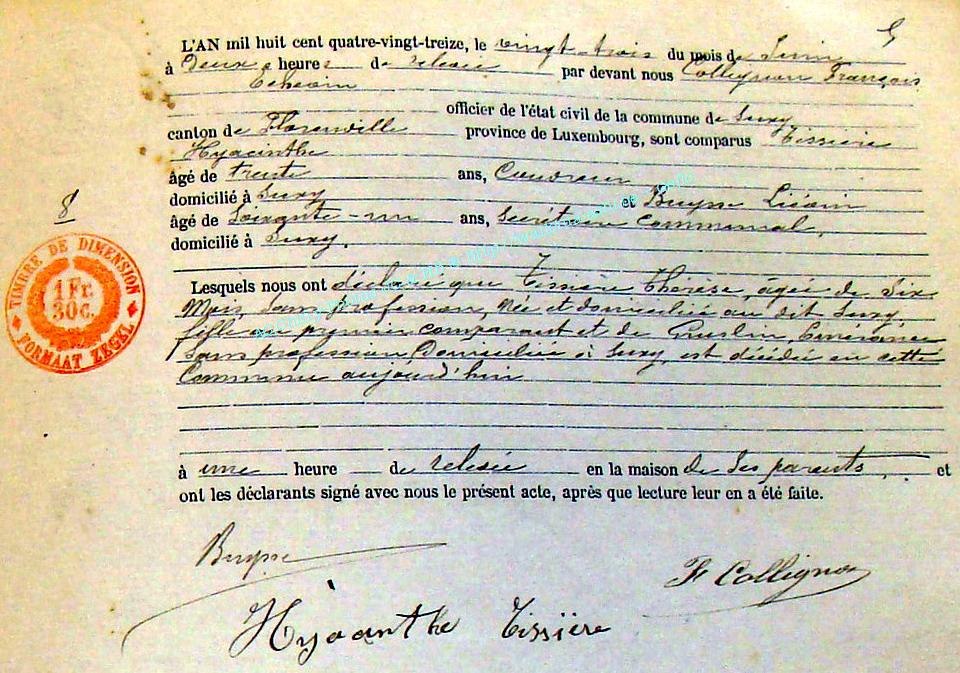 5
L'AN mil huit cent quatre-vingt-treize, le vingt-trois du mois de Juin
à Deux heures de relevée par devant nous Collignon François
Echevin
officier de l'état civil de la commune de Suxy
canton de Florenville province de Luxembourg, sont comparus Tissière
Hyacinthe
âgé de trente ans,
domicilié à Suxy et Buysse
âgé de Soixante-un ans, Secrétaire Communal,
domicilié à Suxy.
8
TIMBRE DE DIMENSION
1 Fr.
30 c.
FORMAAT ZEGEL
Lesquels nous ont déclaré que Tissière Thérèse, âgée de Six
Mois, sans profession, Née et domiciliée au dit Suxy,
fille du premier comparant et de
sans profession, Domiciliée à Suxy, est décédée en cette
Commune aujourd'hui
à une heure de relevée en la maison de Ses parents, et
ont les déclarants signé avec nous le présent acte, après que lecture leur en a été faite.
Buysse
F Collignon
Hyacinthe Tissière